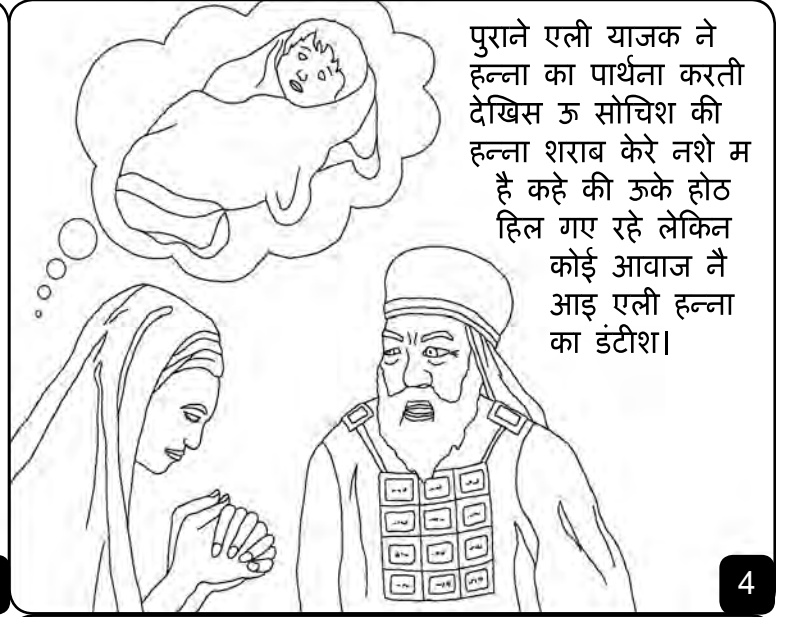 पुराने एली याजक ने
हन्ना का पार्थना करती
देखिस ऊ सोचिश की
हन्ना शराब केरे नशे म
है कहे की ऊके होठ
हिल गए रहे लेकिन
कोई आवाज नै
आइ एली हन्ना
का डंटीश।
4